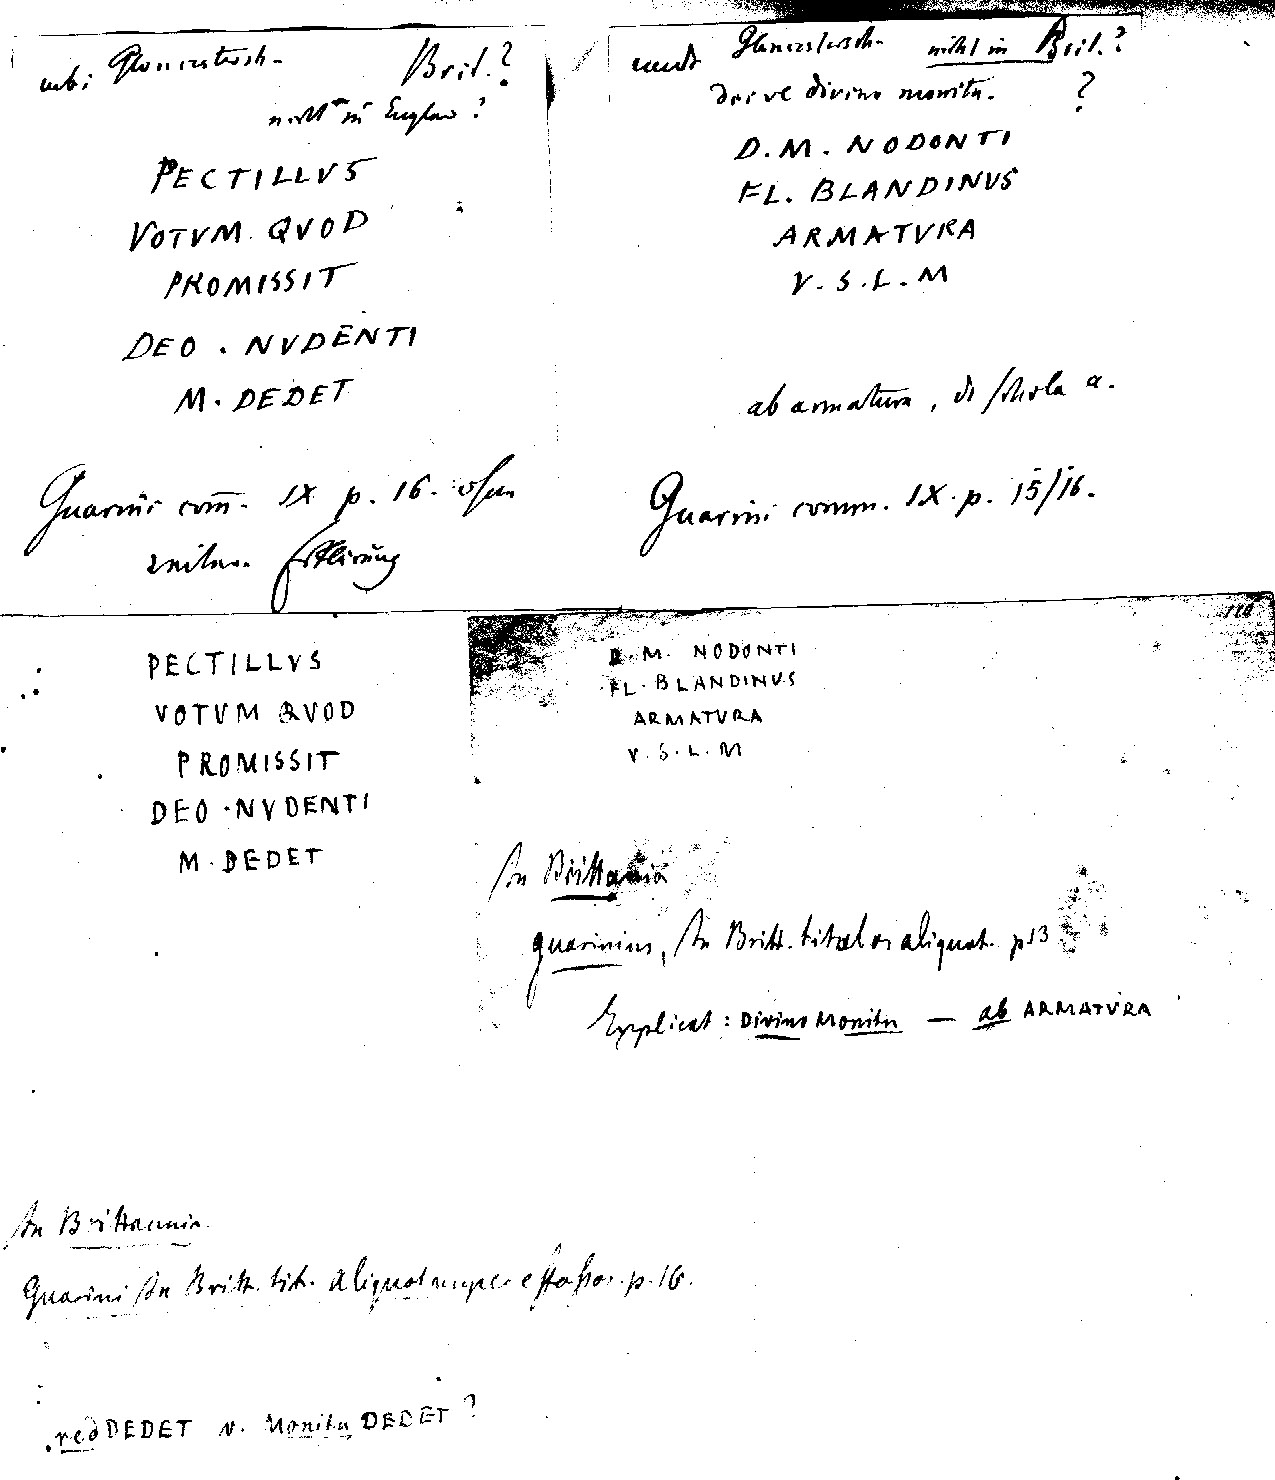 Brit.?
nicht in
PECTILLVS
VOTVM QVOD
PROMISSIT
DEO . NVDENTI
M. DEDET
Guarini com̄. IX p. 16. ohne
weitere Erklärung
nicht in Brit.?
divino monitu. ?
D. M. NODONTI
FL. BLANDINUS
ARMATVRA
V. S. L. M
ab armatura, schola a.
Guarini comm. IX. p. 15/16.
PECTILLVS
VOTVM QVOD
PROMISSIT
DEO . NVDENTI
M. DEDET
D. M. NODONTI
FL. BLANDINUS
ARMATVRA
V. S. L. M
In Brittania
Guarinius, In Britt. titulos aliquot. p 13
Explicat : Divino Monitu — ab ARMATVRA
In Brittannia
Guarini In Britt. tit. aliquot nuper effossos. p. 16.
redDEDET v. Monitu DEDET ?